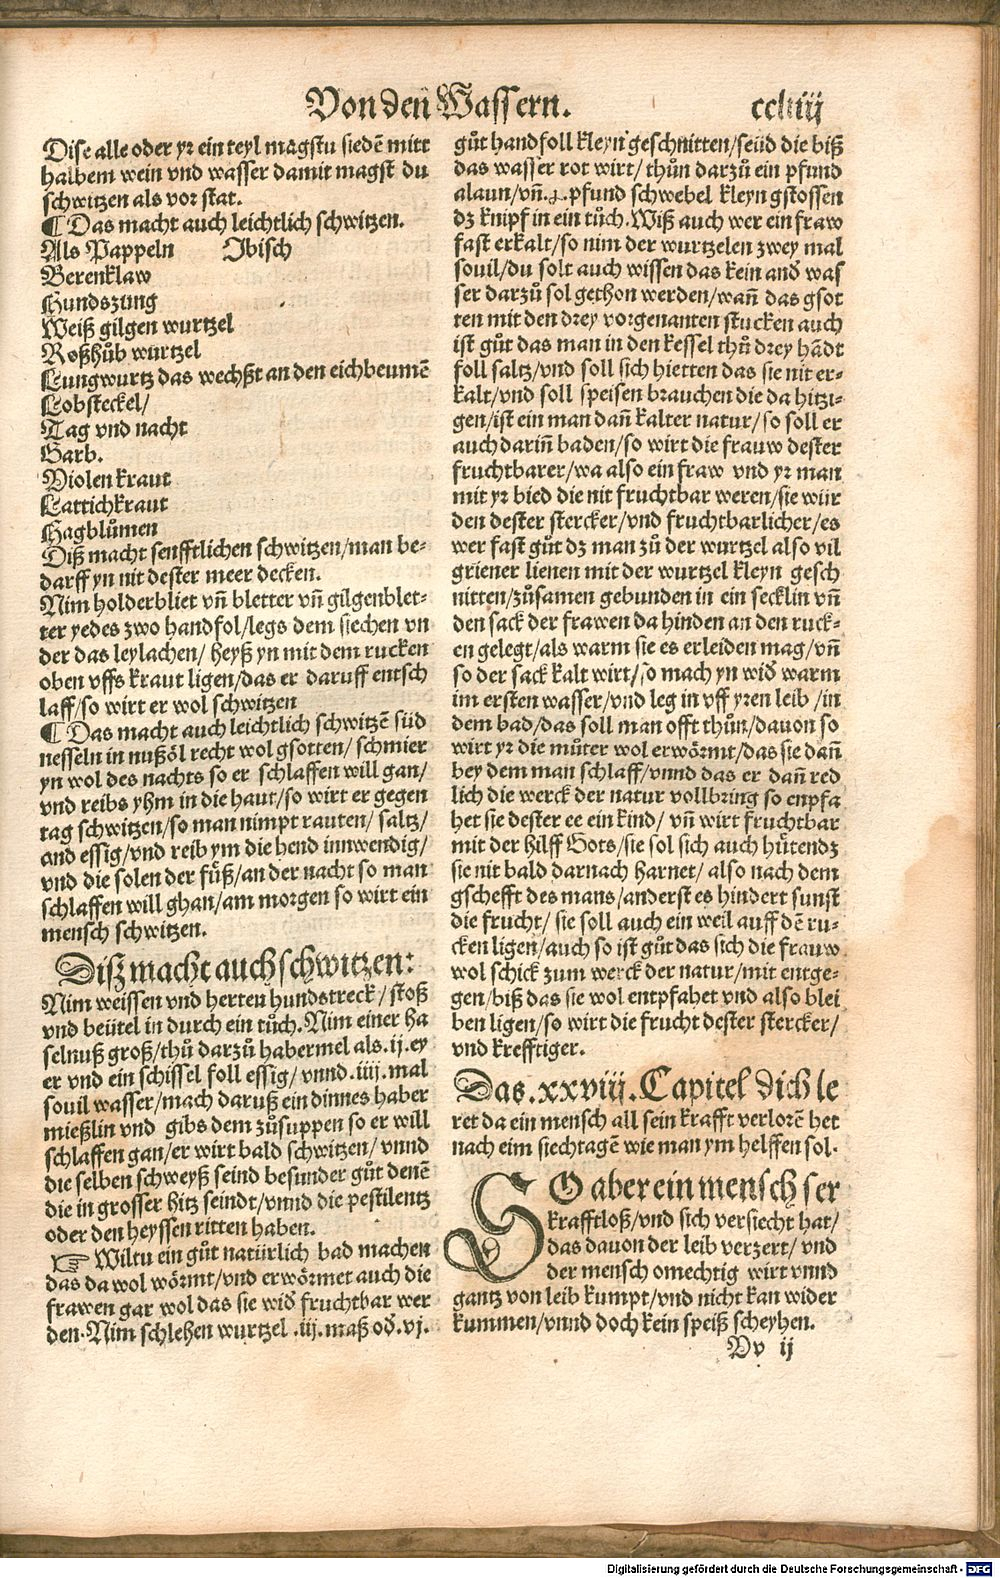 Von den Wassern.
ccliiij
Dise alle oder yr ein teyl magstu siedē mitt
halbem wein vnd wasser damit magst du
schwitzen als vor stat.
¶ Das macht auch leichtlich schwitzen.
Als Pappeln Ibisch
Berenklaw
Hundszung
Weiß gilgen wurtzel
Roßhůb wurtzel
Lungwurtz das wechßt an den eichbeumē
Lobsteckel/
Tag vnd nacht
Garb.
Violen kraut
Lattichkraut
Hagblůmen
Diß macht senfftlichen schwitzen/man be-
darff yn nit dester meer decken.
Nim holderbliet vñ bletter vñ gilgenblet-
ter yedes zwo handfol/legs dem siechen vn
der das leylachen/ heyß yn mit dem rucken
oben vffs kraut ligen/das er daruff entsch
laff/so wirt er wol schwitzen
¶ Das macht auch leichtlich schwitzē süd
nesseln in nußöl recht wol gsotten/ schmier
yn wol des nachts so er schlaffen will gan/
vnd reibs yhm in die haut/so wirt er gegen
tag schwitzen/so man nimpt rauten/ saltz/
and essig/vnd reib ym die hend innwendig/
vnd die solen der füß/an der nacht so man
schlaffen will ghan/am morgen so wirt ein
mensch schwitzen.
Diß macht auch schwitzen:
Nim weissen vnd herten hundstreck/ stoß
vnd beütel in durch ein tůch. Nim einer ha
selnuß groß/thů darzů habermel als .ij. ey
er vnd ein schissel foll essig/ vnnd .iiij. mal
souil wasser/mach daruß ein dinnes haber
mießlin vnd gibs dem zůsuppen so er will
schlaffen gan/er wirt bald schwitzen/ vnnd
die selben schweyß seind besunder gůt denē
die in grosser hitz seindt/vnnd die pestilentz
oder den heyssen ritten haben.
☞ Wiltu ein gůt natürlich bad machen
das da wol wörmt/vnd erwörmet auch die
frawen gar wol das sie wid fruchtbar wer
den. Nim schlehen wurtzel .iij. maß od .vj.
gůt handfoll kleyn geschnitten/seüd die biß
das wasser rot wirt/ thůn darzů ein pfund
alaun/vñ. pfund schwebel kleyn gstossen
dz knipf in ein tůch. Wiß auch wer ein fraw
fast erkalt/so nim der wurtzelen zwey mal
souil/du solt auch wissen das kein and was
ser darzů sol gethon werden/wañ das gsot
ten mit den drey vorgenanten stucken auch
ist gůt das man in den kessel thů drey hādt
foll saltz/vnd soll sich hietten das sie nit er-
kalt/vnd soll speisen brauchen die da hitzi-
gen/ist ein man dañ kalter natur/so soll er
auch dariñ baden/so wirt die frauw dester
fruchtbarer/wa also ein fraw vnd yr man
mit yr bied die nit fruchtbar weren/sie wür
den dester stercker/vnd fruchtbarlicher/es
wer fast gůt dz man zů der wurtzel also vil
griener lienen mit der wurtzel kleyn gesch
nitten/zůsamen gebunden in ein secklin vñ
den sack der frawen da hinden an den ruck-
en gelegt/als warm sie es erleiden mag/vñ
so der sack kalt wirt/so mach yn wid warm
im ersten wasser/vnd leg in vff yren leib /in
dem bad/das soll man offt thůn/dauon so
wirt yr die můter wol erwörmt/das sie dañ
bey dem man schlaff/vnnd das er dañ red
lich die werck der natur vollbring so enpfa
het sie dester ee ein kind/ vñ wirt fruchtbar
mit der hilff Gots/sie sol sich auch hütendz
sie nit bald darnach harnet/ also nach dem
gschefft des mans/anderst es hindert sunst
die frucht/ sie soll auch ein weil auff dē ru-
cken ligen/auch so ist gůt das sich die frauw
wol schick zum werck der natur/mit entge-
gen/biß das sie wol entpfahet vnd also blei
ben ligen/so wirt die frucht dester stercker/
vnd krefftiger.
Das .xxviij. Capitel dich le
ret da ein mensch all sein krafft verlorē het
nach eim siechtagē wie man ym helffen sol.
SO aber ein mensch ser
krafftloß/vnd sich versiecht hat/
das dauon der leib verzert/ vnd
der mensch omechtig wirt vnnd
gantz von leib kumpt/vnd nicht kan wider
kummen/vnnd doch kein speiß scheyhen.
Vv ij
Digitalisierung gefördert durch die Deutsche Forschungsgemeinschaft - DFG